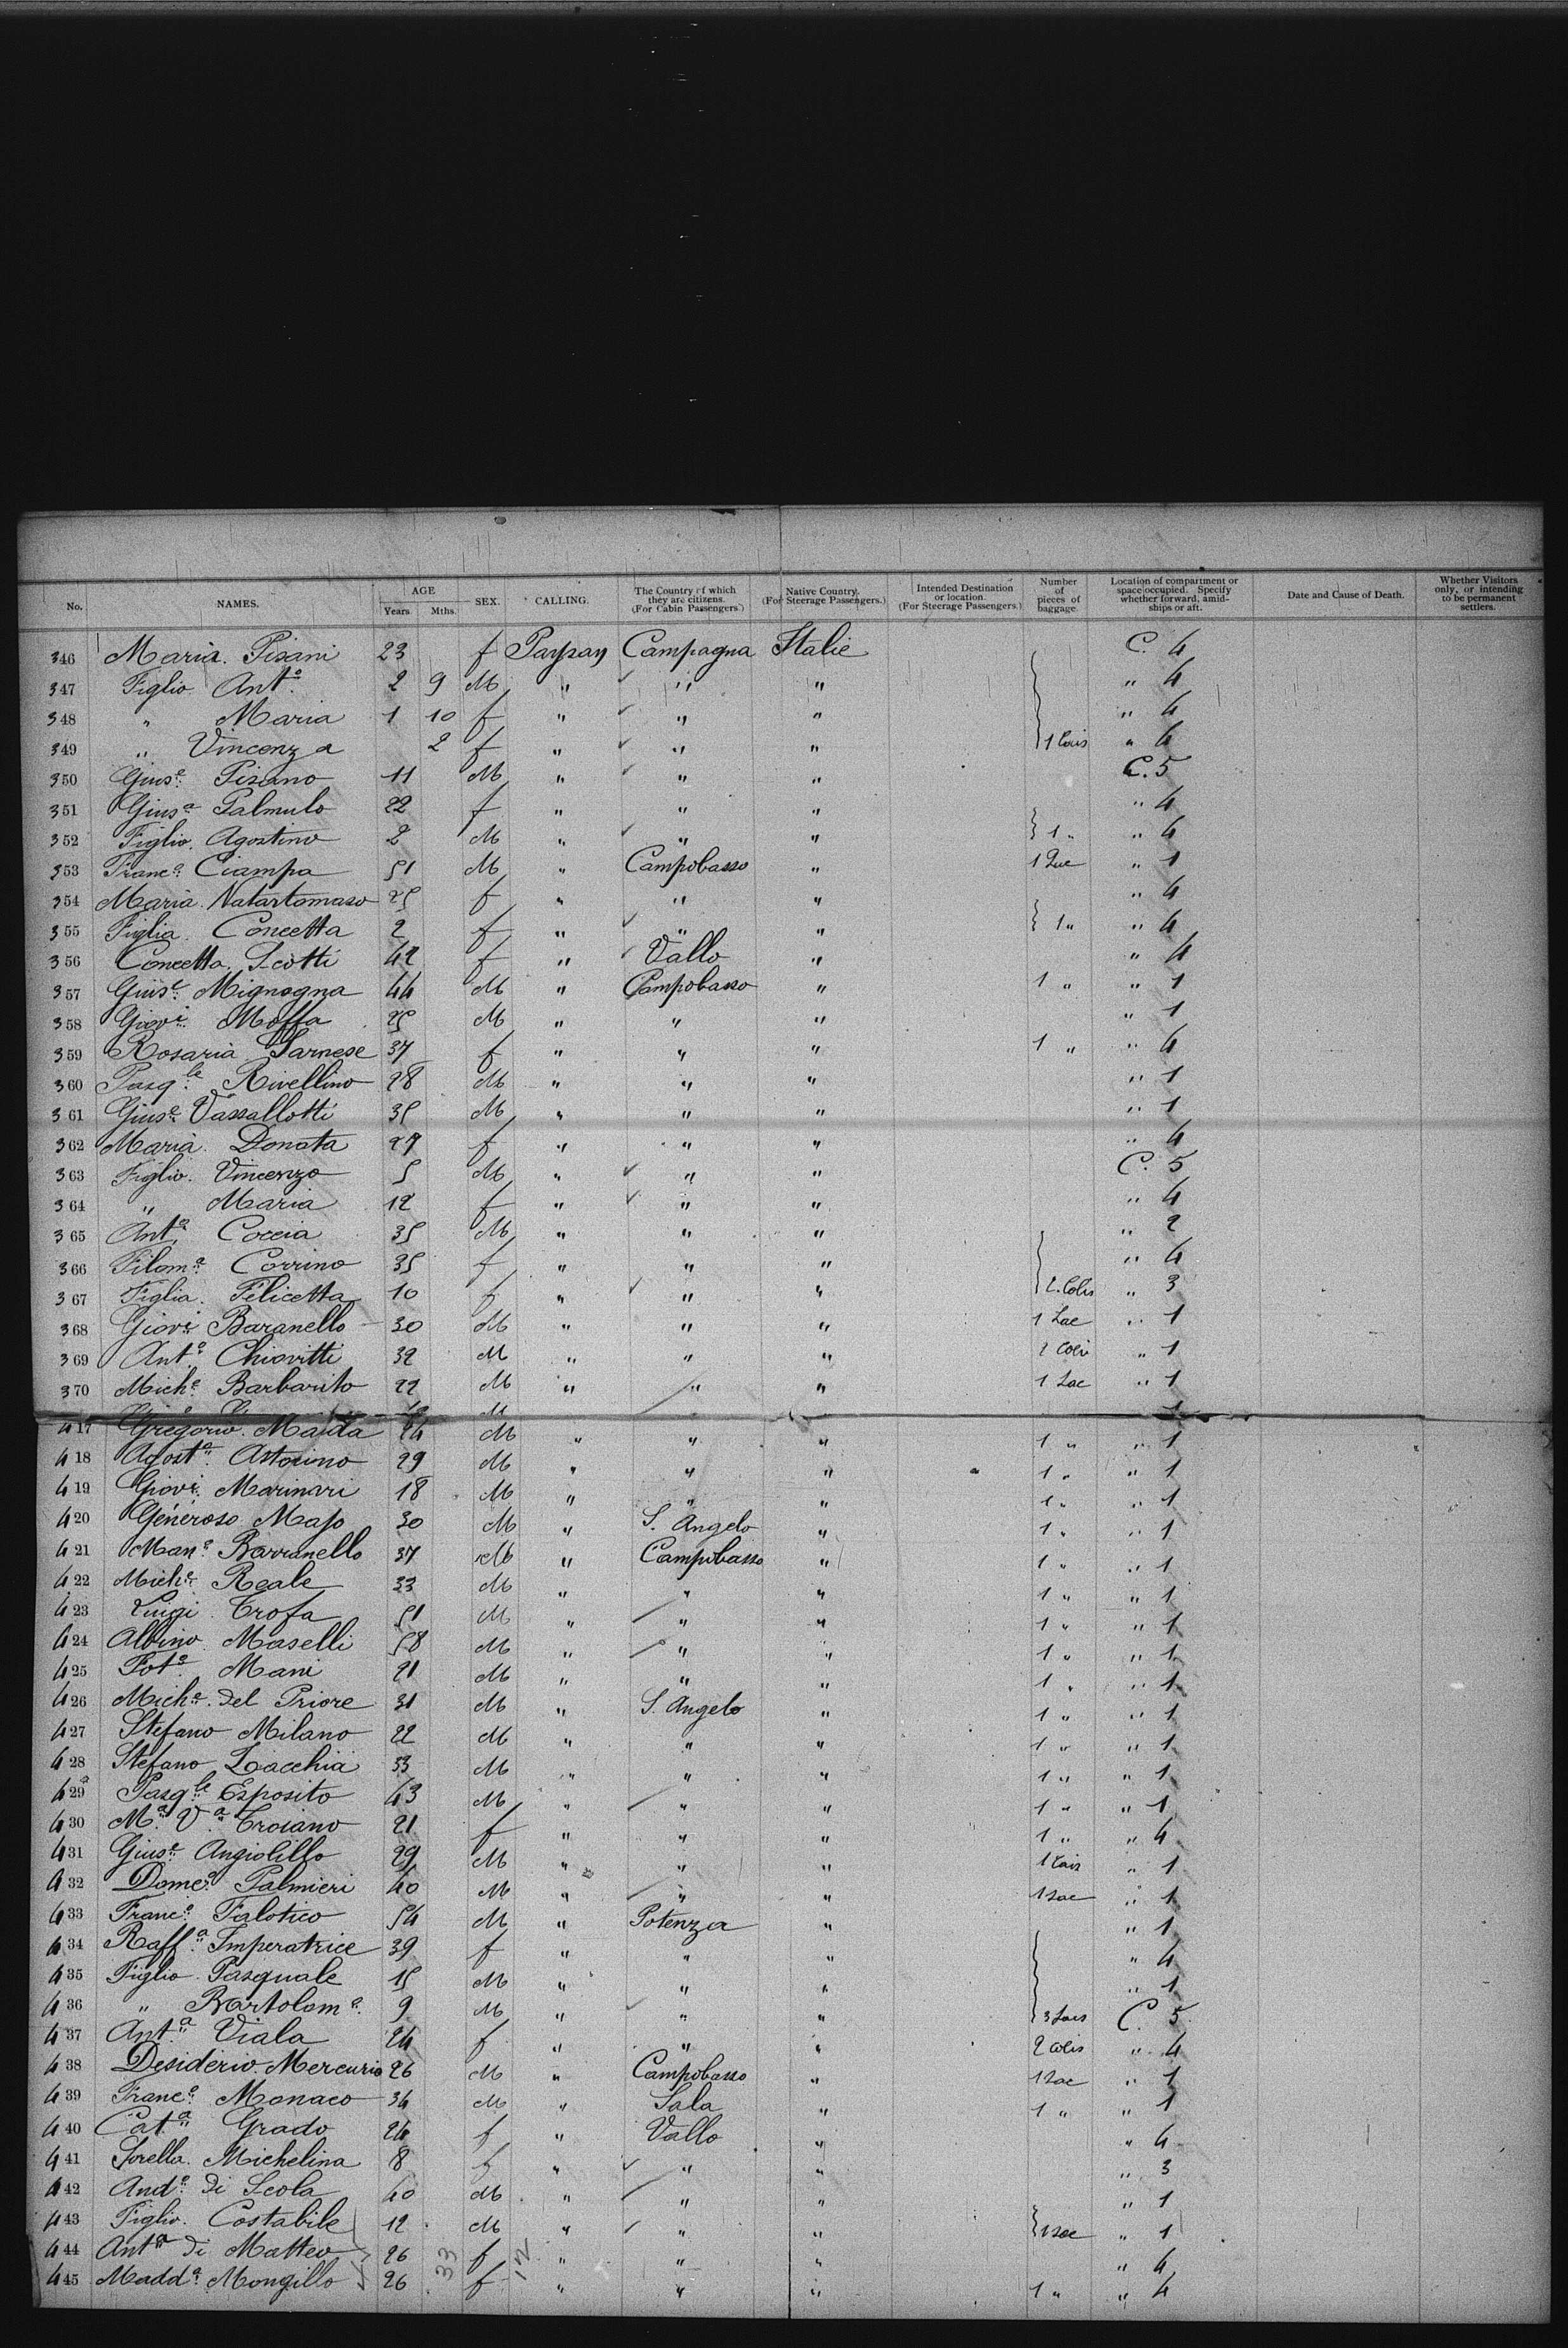 No. NAMES. AGE Years. Mths. SEX. CALLING. The Country of which they are citizens. (For Cabin Passengers.) Native Country. (For Steerage Passengers.) Intended Destination or location. (For Steerage Passengers.) Number of pieces of baggage. Location of compartment or space occupied. Specify whether forward, amidships or aft. Date and Cause of Death. Whether Visitors only, or intending to be permanent settlers.
346 Maria Pisani 23 f Paysan Campagna Italie C. 4
347 Figlio Antº 2 9 M " " " " 4
348 " Maria 1 10 f " " " " 4
349 " Vincenza 2 f " " " 1 " 4
350 Giusᵉ Pisano 11 M " " " C. 5
351 Giusᵃ Palmulo 22 f " " " " 4
352 Figlio Agostino 2 M " " " 1 " " 4
353 Francº Ciampa 51 M " Campobasso " 1 " 1
354 Maria Natartomaso 25 f " " " " 4
355 Figlia Concetta 2 f " " " 1 " " 4
356 Concetta Scotti 42 f " Vallo " " 4
357 Giusᵉ Mignogna 44 M " Campobasso " 1 " " 1
358 Giovⁱ Moffa 25 M " " " " 1
359 Rosaria Sarnese 37 f " " " 1 " " 4
360 Pasqˡᵉ Rivellino 28 M " " " " 1
361 Giusᵉ Vassallotti 35 M " " " " 1
362 Maria Donata 27 f " " " " 4
363 Figlio Vincenzo 5 M " " " C. 5
364 " Maria 12 f " " " " 4
365 Antº Coccia 35 M " " " " 2
366 Filomᵃ Corrino 35 f " " " " 4
367 Figlia Felicetta 10 f " " " 2 Colis " 3
368 Giovⁱ Baranello 30 M " " " 1 Sac " 1
369 Antº Chiovitti 32 M " " " 2 Colis " 1
370 Michᵉ Barbarito 22 M " " " 1 Sac " 1
417 Gregorio Maida 24 M " " " 1 " " 1
418 Agostº Astorino 29 M " " " 1 " " 1
419 Giovⁱ Marinari 18 M " " " 1 " " 1
420 Géneroso Maso 30 M " S. Angelo " 1 " " 1
421 Manᵉ Barranello 37 M " Campobasso " 1 " " 1
422 Michᵉ Reale 33 M " " " 1 " " 1
423 Luigi Trofa 51 M " " " 1 " " 1
424 Albino Maselli 58 M " " " 1 " " 1
425 Potº Mani 21 M " " " 1 " " 1
426 Michᵉ del Priore 31 M " S. Angelo " 1 " " 1
427 Stefano Milano 22 M " " " 1 " " 1
428 Stefano Zacchia 33 M " " " 1 " " 1
429 Pasqˡᵉ Esposito 43 M " " " 1 " " 1
430 Mᵃ Vᵃ Troiano 21 f " " " 1 " " 4
431 Giusᵉ Angiolillo 29 M " " " 1 " 1
432 Domeº Palmieri 40 M " " " 1 sac " 1
433 Francº Falotico 54 M " Potenza " " 1
434 Raffᵃ Imperatrice 39 f " " " " 4
435 Figlio Pasquale 15 M " " " " 1
436 " Bartolomº 9 M " " " 3 Sacs C. 5
437 Antᵃ Viala 24 f " " " 2 colis " 4
438 Desiderio Mercurio 26 M " Campobasso " 1 sac " 1
439 Francº Monaco 34 M " Sala " 1 " " 1
440 Catᵃ Grado 24 f " Vallo " " 4
441 Sorella Michelina 8 f " " " " 3
442 Andᵉ di Scola 40 M " " " " 1
443 Figlio Costabile 12 M " " " 1 sac " 1
444 Antᵃ di Matteo 26 f " " " " 4
445 Maddᵃ Mongillo 26 f " " " 1 " " 4
33 12